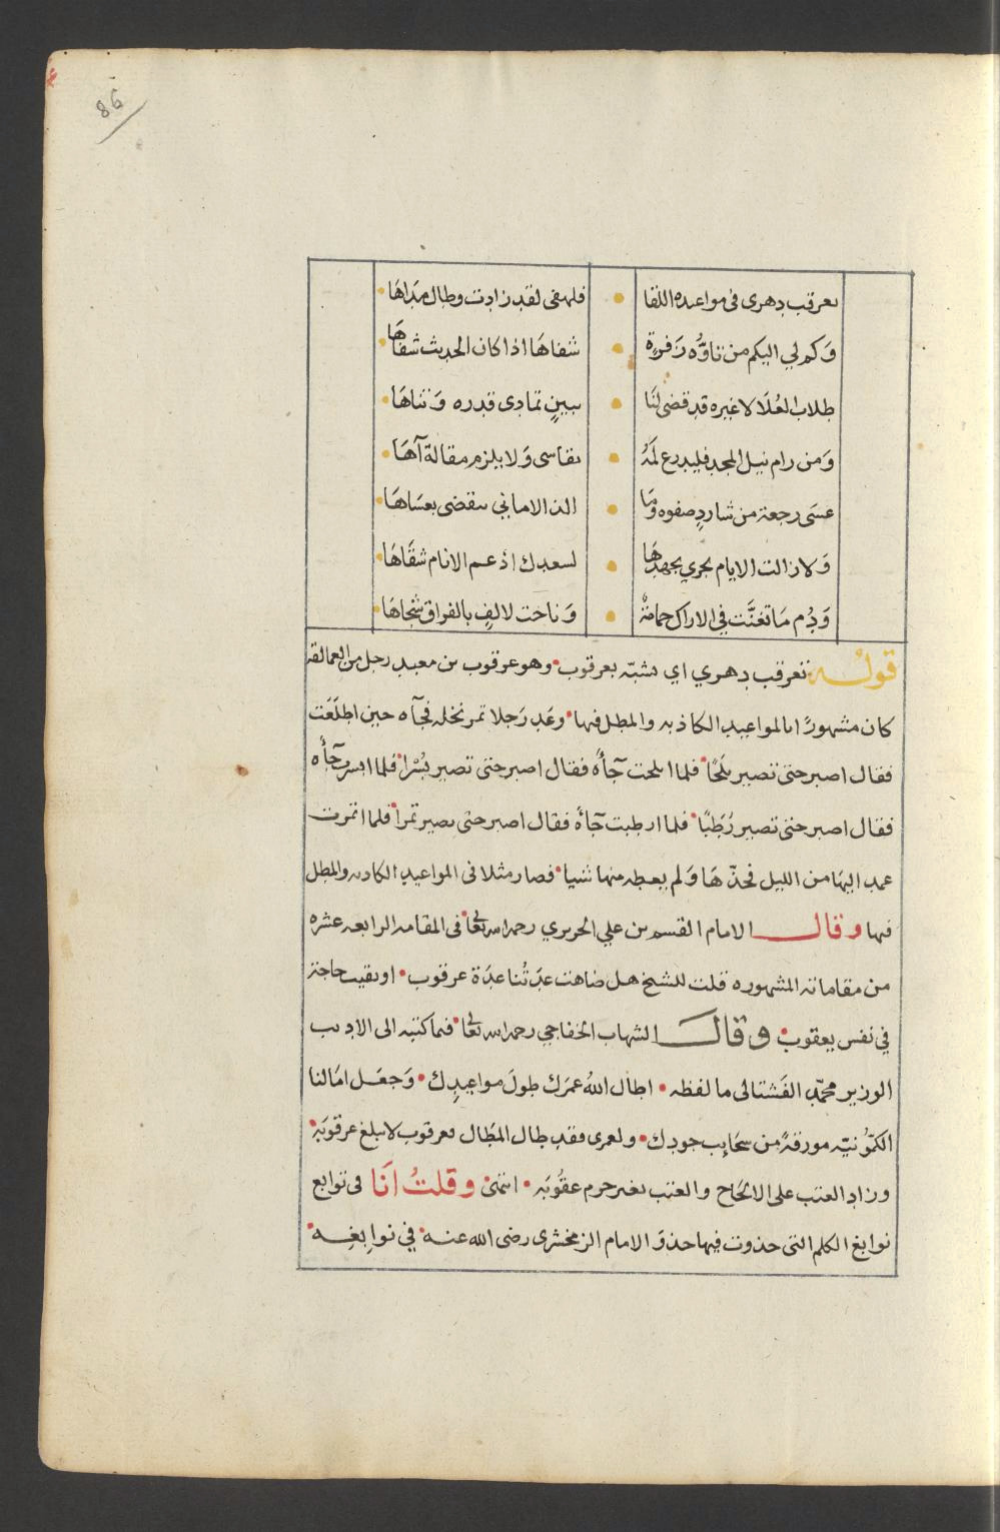 86
تعرقب دهرى فى مواعيده اللقا • فلهفى لقد زادت وطال مداها
وَكم لي اليكم من تاوُّه زَفرةٍ • شفاهَا اذا كان الحديث شفاهَا
طلاب العُلَا لا غيره قد قضى لنَا • ببينٍ تمادى قدره وَتناهَا
وَمن رام نيل المجد فليدرع لَهُ • يقاسى وَلا يلزم مقالة آهَا
عسَى رجعة من شاردٍ صفوه وَمَا • الذ الاماني ينقضى بعسَاهَا
وَلا زالت الايام تجري بجهدهَا • لسعدك اذ عم الانام شقَاهَا
وَدُم مَا تغنَّت في الاراك حمامةٌ • وَناحت لالفٍ بالفراق شجاهَا
قولُه تعرقب دهري اي تشبّه بعرقوب • وهو عرقوب بن معبد رجل من العمالقه
كان مشهورًا بالمواعيد الكاذبه والمطل فيها • وعَد رَجلا تمر نخله فجآه حين اطلَعَت
فقال اصبر حتى تصير بلَحًا • فلما ابلحت جآأه فقال اصبر حتى تصير بُسْرا • فلما ابسرت جآأه
فقال اصبر حتى تصير رُطَبًا • فلما ارطبت جآأه فقال اصبر حتى تصير تمرا • فلما اتمرت
عمد اليهَا من الليل فجذّهَا وَلم يعطه منها شيا • فصار مثلا فى المواعيد الكاذبه والمطل
فيها وقال الامام القسم بن علي الحريري رحمه الله تعالى • فى المقامه الرابعه عشره
من مقاماته المشهوره قلت للشيخ هل ضاهت عِدَتُنا عِدَة عرقوب • او بقيت حاجة
في نفس يعقوب • وقال الشهاب الخفاجي رحمه الله تعالى • فيما كتبه الى الاديب
الوزير محمّد الفَشتالى ما لفظه • اطال اللهُ عمرَك طولَ مواعيدِك • وَجعَل امَالنا
الكمّونيّه مورقةً من سحَايب جودك • ولعمرى فقد طال المطَال فعرقوب لا يبلغ عرقوبَه •
وزاد العتب على الالحَاح والعتب لغير جرم عقُوبَه • انتهى وقلتُ انَا فى توابع
نوابغ الكلم التى حذوت فيها حذوَ الامام الزمخشرى رضى الله عنه • في نوابِغِه •